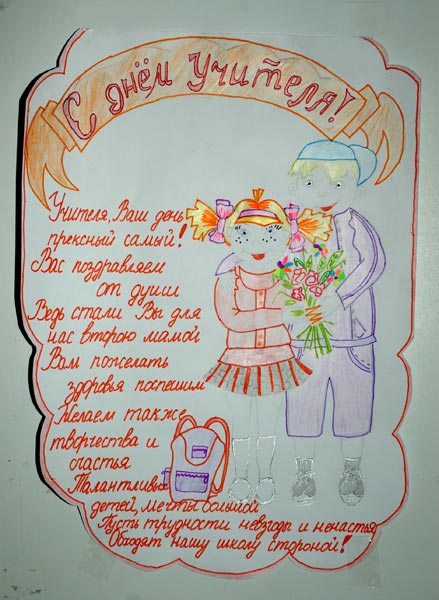 С днём Учителя!
Учителя, Ваш день
прексный самый!
Вас поздравляем
от души
Ведь стали Вы для
нас второю мамой
Вам пожелать
здоровья поспешим
Желаем также
творчества и
счастья
Талантливых
детей, мечты большой
Пусть трудности невзгоды и ненастья
Обходят нашу школу стороной!